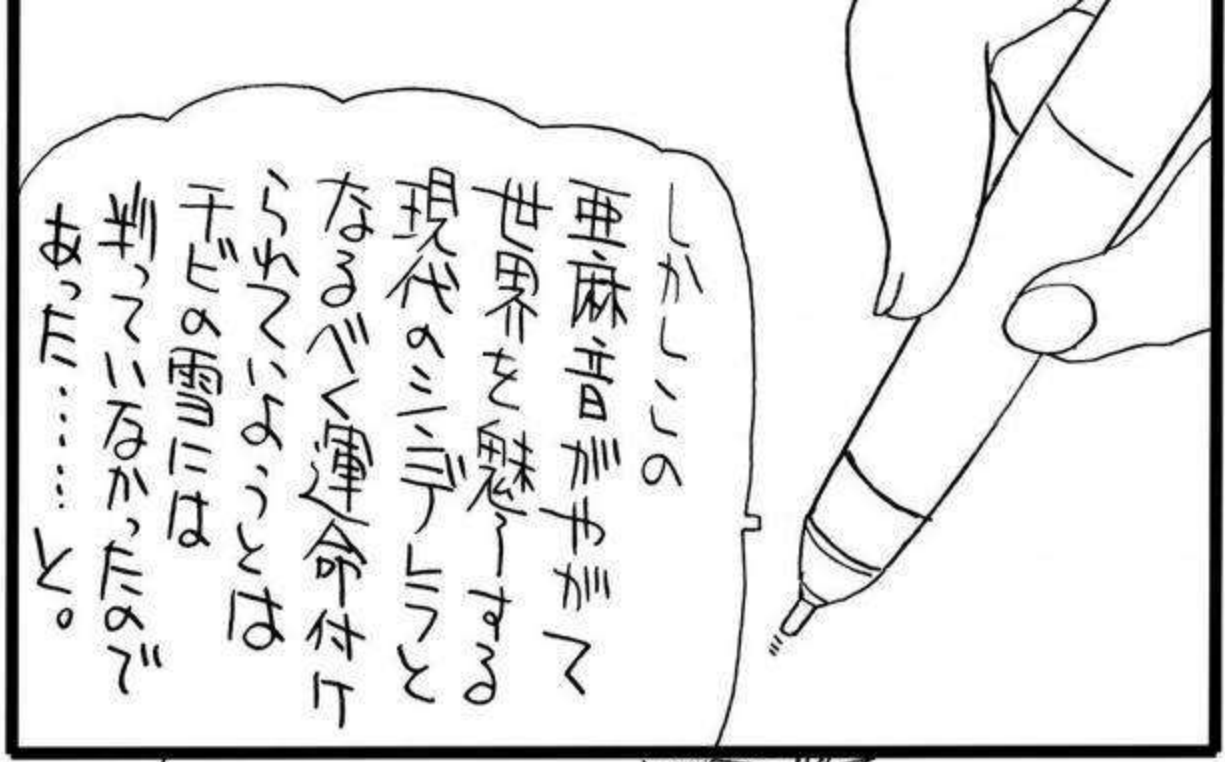 しかしこの
亜麻音がやがて
世界を魅了する
現代のシンデレラと
なるべく運命付け
られていようとは
チビの雪には
判っていなかったので
あった……と。